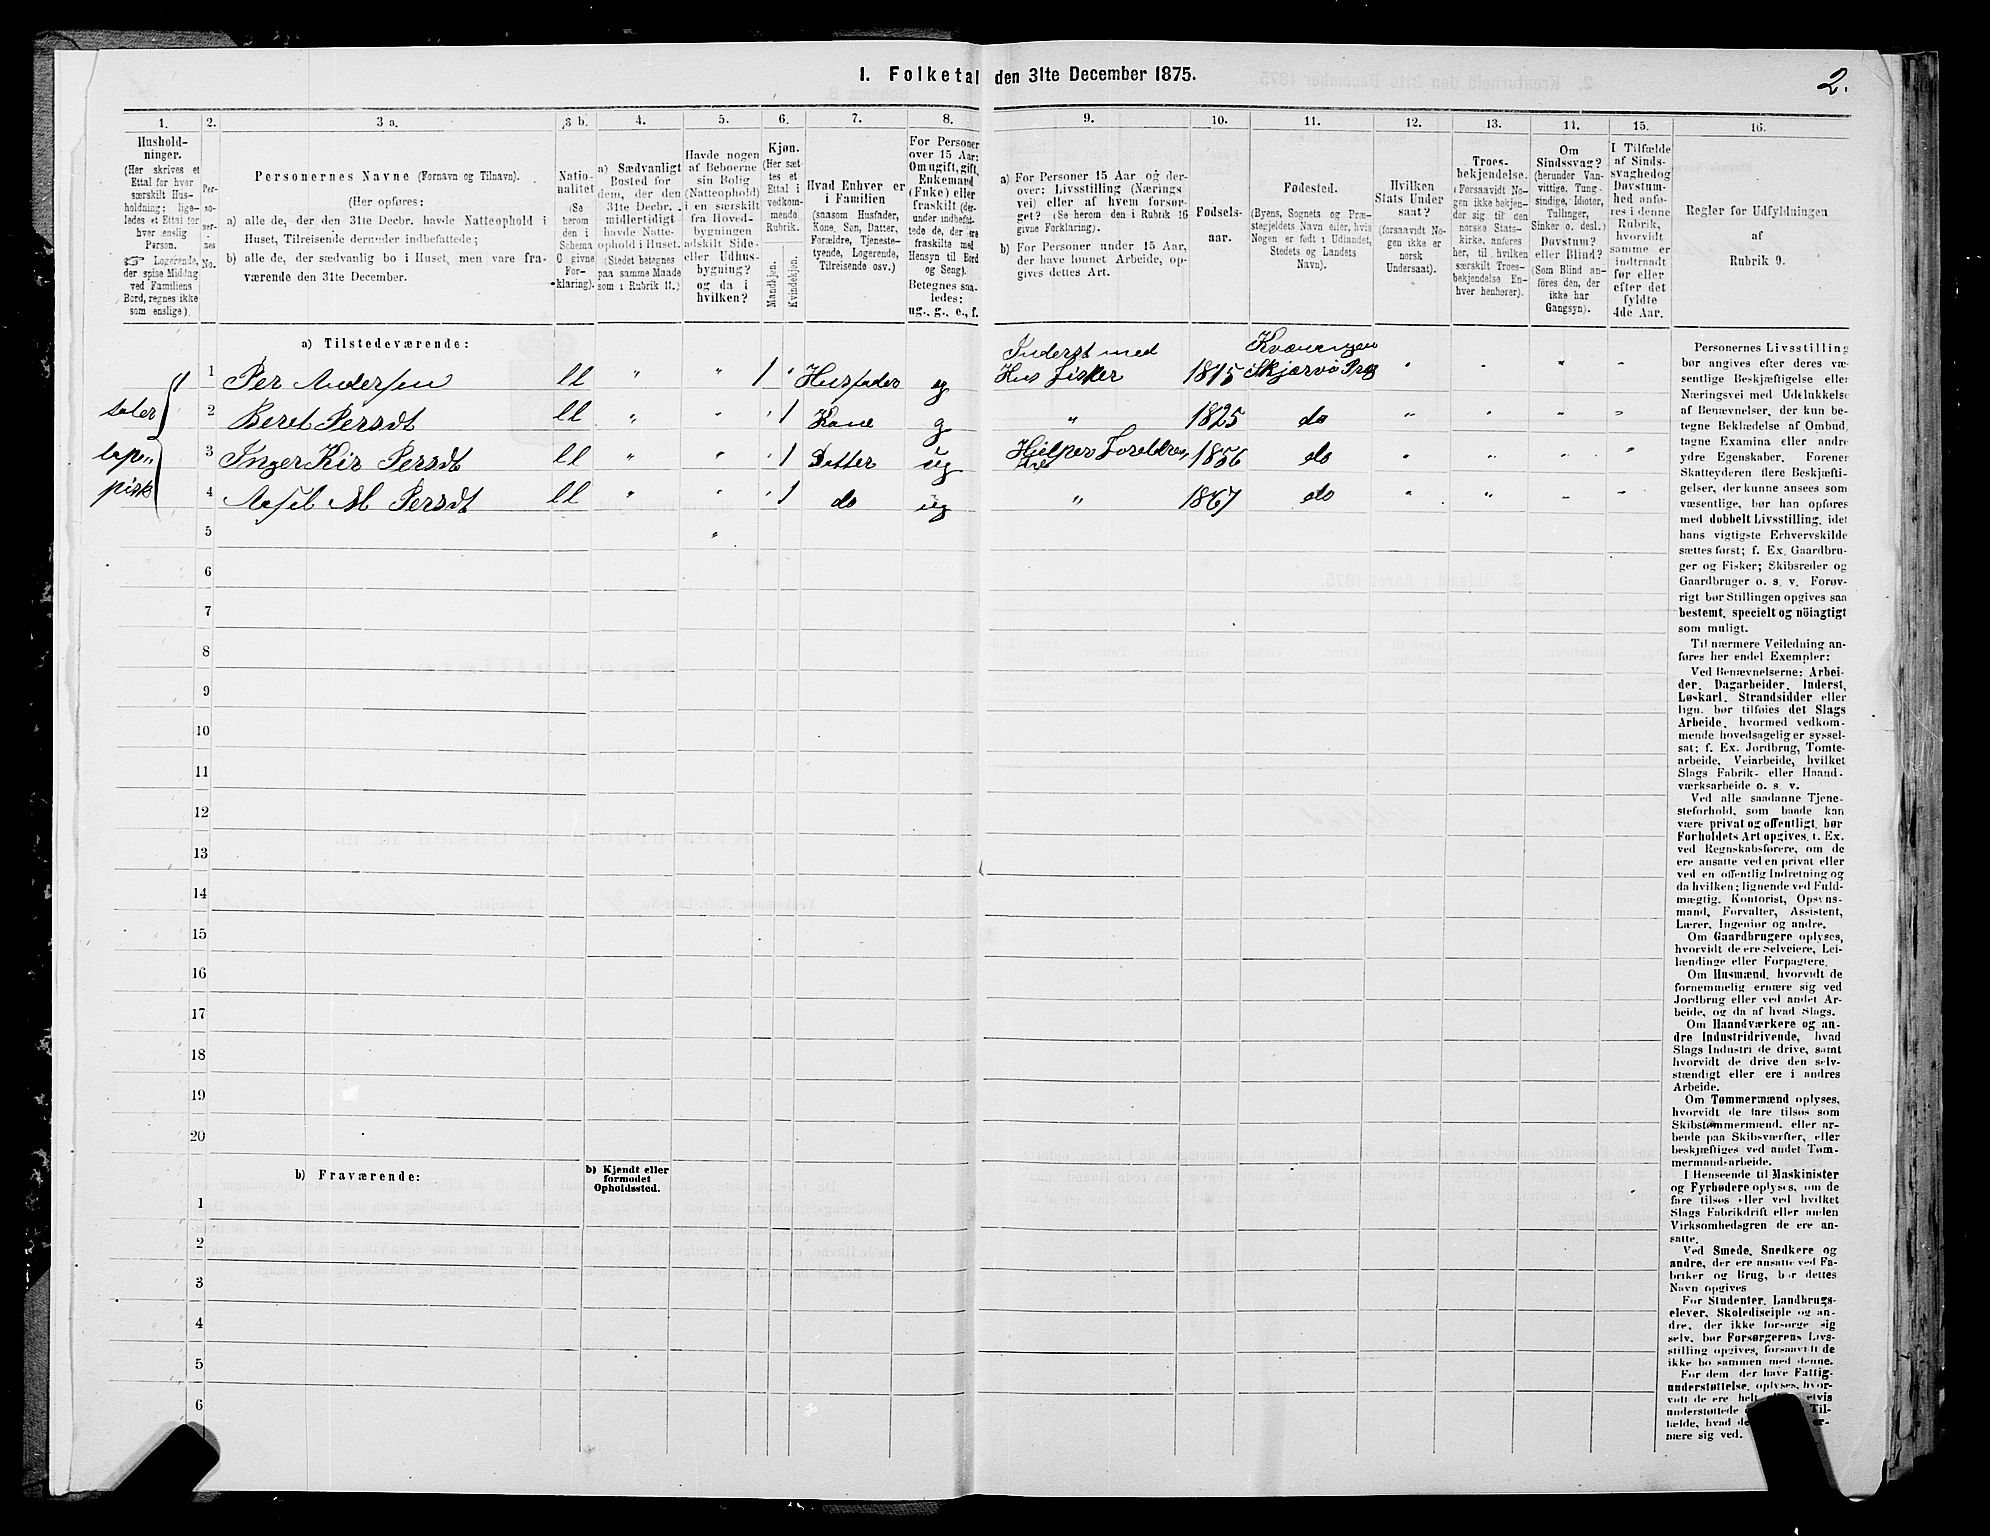 1. Folketal den 31te December 1875.
2.
1.
Hushold-
ninger.
(Her skrives et
Ettal for hver
særskilt Hus-
holdning; lige-
ledes et Ettal for
hver enslig
Person.
☞ Logerende,
der spise Middag
ved Familiens
Bord, regnes ikke
som enslige).
2.
Per-
so-
ner-
nes
No.
3 a.
Personernes Navne (Fornavn og Tilnavn).
(Her opføres:
a) alle de, der den 31te Decbr. havde Natteophold i
Huset, Tilreisende derunder indbefattede;
b) alle de, der sædvanlig bo i Huset, men vare fra-
værende den 31te December.
3 b.
Natio-
nalitet
(Se
herom
den i
Schema
C givne
For-
klaring).
4.
a) Sædvanligt
Bosted for
dem, der den
31te Decbr.
midlertidigt
havde Natte-
ophold i Huset.
(Stedet betegnes
paa samme Maade
som i Rubrik 11.)
5.
Havde nogen
af Beboerne
sin Bolig
(Natteophold)
i en særskilt
fra Hoved-
bygningen
adskilt Side-
eller Udhus-
bygning?
og da i
hvilken?
6.
Kjøn.
(Her sæt-
tes et
Ettal i
vedkom-
mende
Rubrik.
Mandkjøn.
Kvindekjøn.
7.
Hvad Enhver er
i Familien
(saasom Husfader,
Kone, Søn, Datter,
Forældre, Tjeneste-
tyende, Logerende,
Tilreisende osv.)
8.
For Personer
over 15 Aar:
Om ugift, gift,
Enkemand
(Enke) eller
fraskilt (der-
under indbefat-
tede de, der ere
fraskilte med
Hensyn til Bord
og Seng).
Betegnes saa-
ledes:
ug., g., e., f.
9.
a) For Personer 15 Aar og der-
over: Livsstilling (Nærings
vei) eller af hvem forsør-
get? (Se herom den i Rubrik 16
givne Forklaring).
b) For Personer under 15 Aar,
der have lønnet Arbeide, op-
gives dettes Art.
10.
Fødsels-
aar.
11.
Fødested.
(Byens, Sognets og Præ-
stegjeldets Navn eller, hvis
Nogen er født i Udlandet,
Stedets og Landets
Navn).
12.
Hvilken
Stats Under
saat?
(forsaavidt No-
gen ikke er
norsk
Undersaat).
13.
Troes-
bekjendelse.
(Forsaavidt No-
gen ikke bekjen-
der sig til den
norske Stats-
kirke, anføres
her, til hvilken
særskilt Troes-
bekjendelse En-
hver henhører).
14.
Om
Sindssvag?
(herunder Van-
vittige, Tung-
sindige, Idioter,
Tullinger,
Sinker o. desl.)
Døvstum?
eller Blind?
(Som Blind an-
føres den, der
ikke har
Gangsyn).
15.
I Tilfælde
af Sinds-
svaghed og
Døvstum-
hed anfø-
res i denne
Rubrik,
hvorvidt
samme er
indtraadt
før eller
efter det
fyldte
4de Aar.
16.
Regler før Udfyldningen
af
Rubrik 9.
a) Tilstedeværende:
1 Per Andersen ll " " 1 Husfader g Inderst med Hus Fisker 1815 Kvænangen Skjærvø Præg
2 Beret Persdt ll " " 1 Kone g " 1825 do
3 Inger Kir Persdt ll " " 1 Datter ug Hjelper Foreldrene 1856 do
4 M Persdt ll " " 1 do ug " 1867 do
taler
lape"
pisk
5
6
7
8
9
10
11
12
13
14
15
16
17
18
19
20
b) Fraværende:
b) Kjendt eller
formodet
Opholdssted.
1
2
3
4
5
6
Personernes Livsstilling
bør angives efter deres væ-
sentlige Beskjæftigelse eller
Næringsvei med Udelukkelse
af Benævnelser, der kun be-
tegne Beklædelse af Ombud,
tagne Examina eller andre
ydre Egenskaber. Forener
Skatteyderen flere Beskjæfti-
gelser, der kunne ansees som
væsentlige, bør han opføres
med dobbelt Livsstilling, idet
hans vigtigste Erhvervskilde
sættes først; f. Ex. Gaardbru-
ger og Fisker; Skibsreder og
Gaardbruger o. s. v. Forøv-
rigt bør Stillingen opgives saa
bestemt, specielt og nöiagtigt
som muligt.
Til nærmere Veiledning an-
føres her endel Exempler:
Ved Benævnelserne: Arbei-
der, Dagarbeider, Inderst,
Løskarl, Strandsidder eller
lign. bør tilføies det Slags
Arbeide, hvormed vedkom-
mende hovedsagelig er syssel-
sat; f. Ex. Jordbrug, Tomte-
arbeide, Veiarbeide, hvilket
Slags Fabrik- eller Haand-
værksarbeide o. s. v.
Ved alle saadanne Tjene-
steforhold, som baade kan
være privat og offentligt, bør
Forholdets Art opgives, f. Ex.
ved Regnskabsførere, om de
ere ansatte ved en privat eller
ved en offentlig Indretning og
da hvilken; lignende ved Fuld-
mægtig, Kontorist, Opsyns-
mand, Forvalter, Assistent,
Lærer, Ingeniør og andre.
Om Gaardbrugere oplyses,
hvorvidt de ere Selveiere, Lei-
lændinge eller Forpagtere.
Om Husmænd, hvorvidt de
fornemmelig ernære sig ved
Jordbrug eller ved andet Ar-
beide, og da af hvad Slags.
Om Haandværkere og an-
dre Industridrivende, hvad
Slags Industri de drive, samt
hvorvidt de drive den selv-
stændigt eller ere i andres
Arbeide.
Om Tømmermænd oplyses,
hvorvidt de fare tilsøs som
Skibstømmermænd, eller ar-
beide paa Skibsværfter, eller
beskjæftiges ved andet Tøm-
mermand-arbeide.
I Henseende til Maskinister
og Fyrbødere oplyses, om de
fare tilsøs eller ved hvilket
Slags Fabrikdrift eller anden
Virksomhedsgren de ere an-
satte.
Ved Smede, Snedkere og
andre, der ere ansatte ved Fa-
briker og Brug, bør dettes
Navn opgives
For Studenter, Landbrugs-
elever, Skoledisciple og an-
dre, der ikke forsørge sig
selv, bør Forsørgerens Livs-
stilling opgives, forsaavidt de
ikke bo sammen med denne.
For dem, der have Fattig-
understøttelse, oplyses, hvor-
vidt de ere helt
understøttede
fælde, hvad de
nære sig ved.